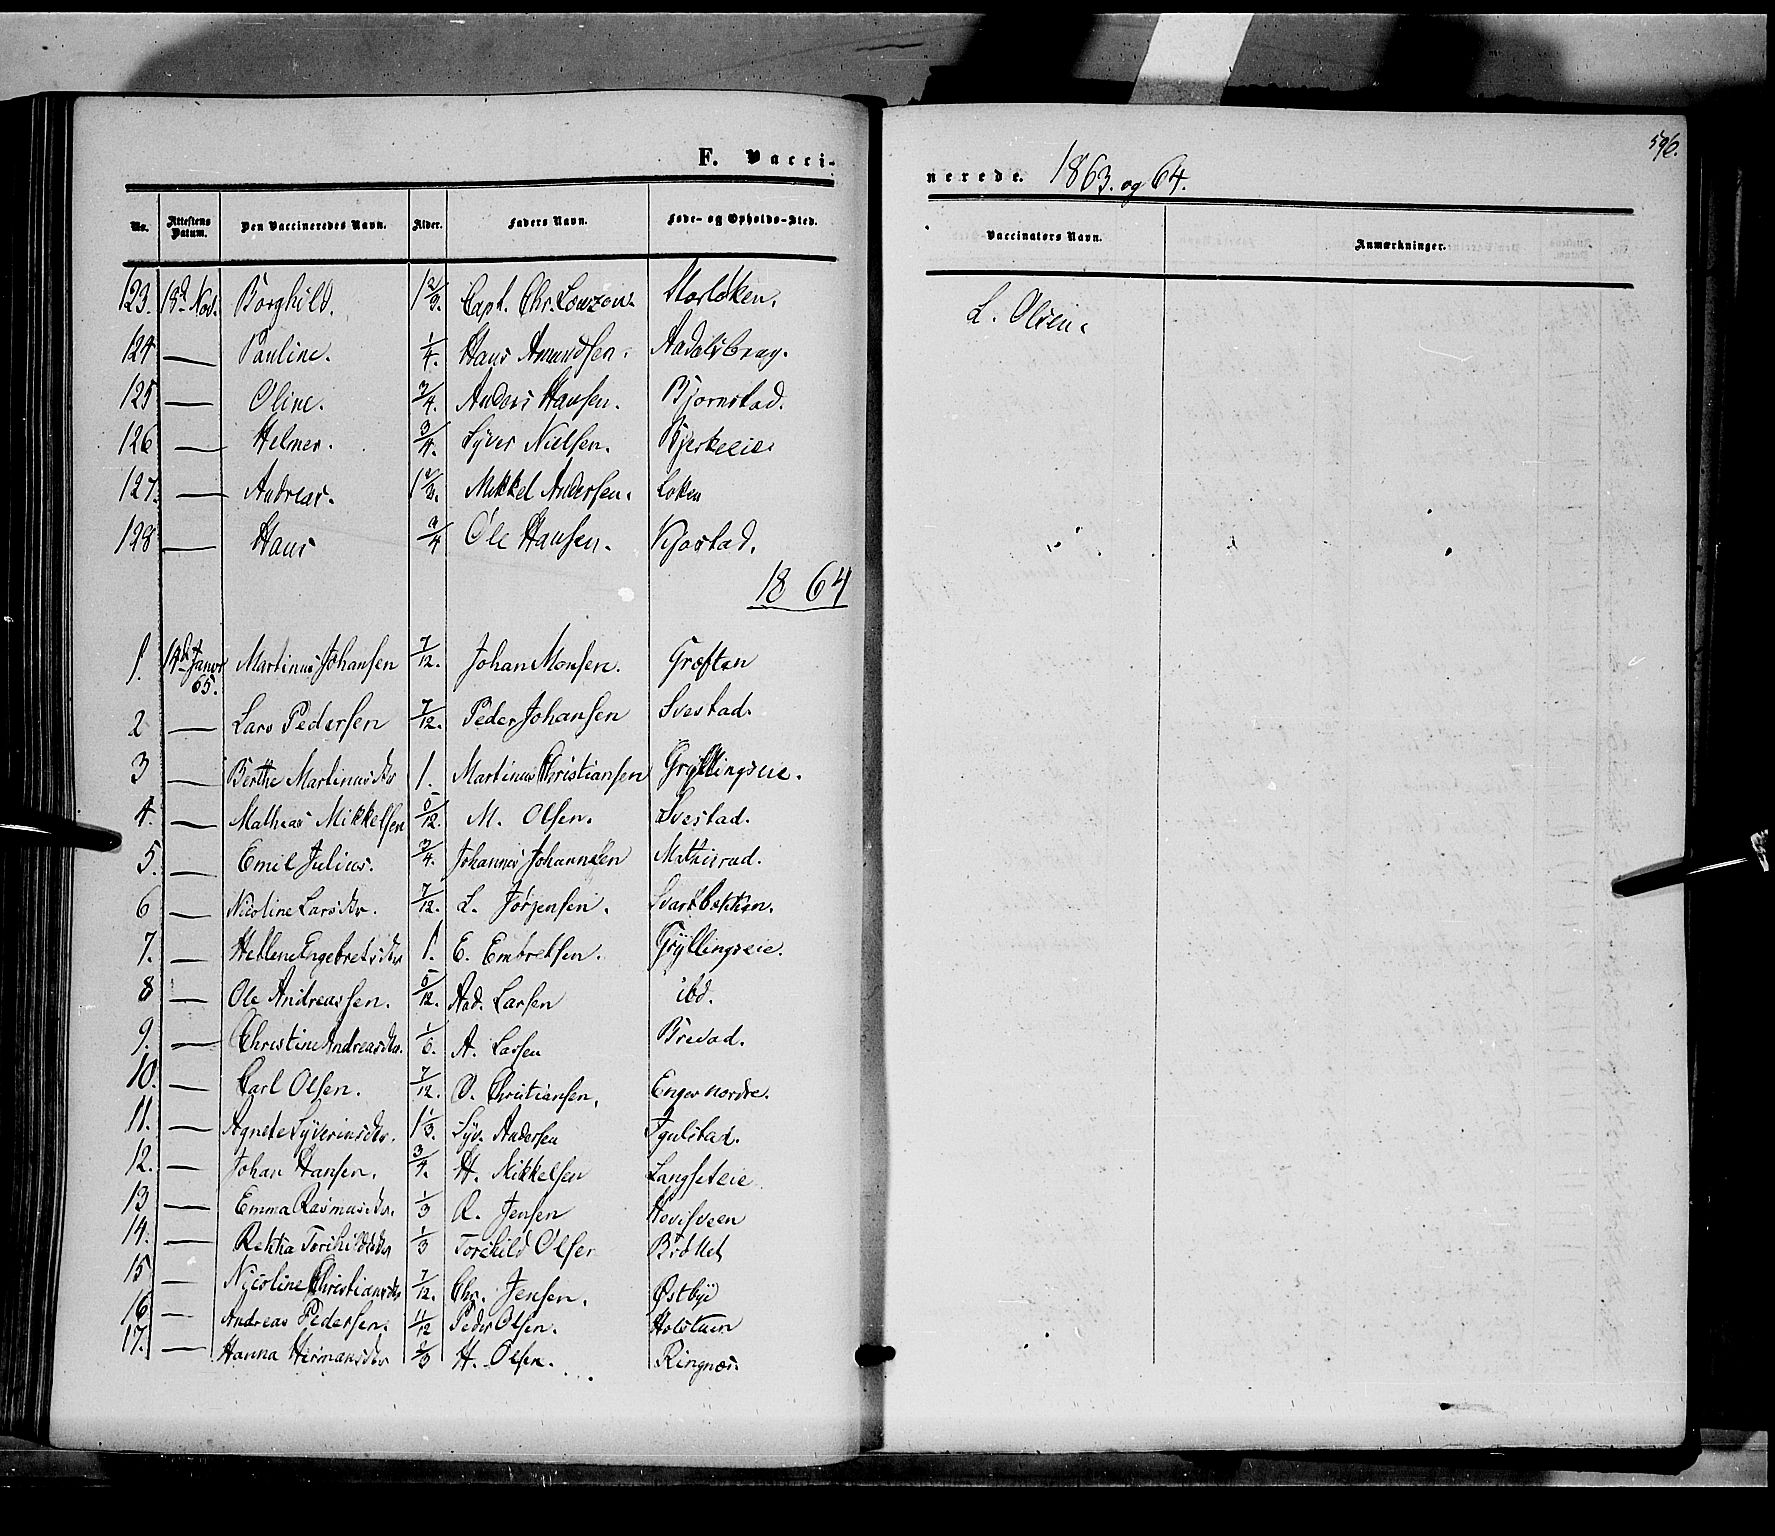 F. Vacci-
nerede. 1863. og 64.
596.
No. Attestens Datum. Den Vaccineredes Navn. Alder. Faders Navn. Føde- og Opholds-Sted. Vaccinators Navn. Anmærkninger.
123. 18d Nov. Borghild. 1 2/3. Capt. Chr. Lowzow. Storløken. L. Olsen.
124 — Pauline. 1/4. Hans Amundsen. Aadalsbrug.
125 — Oline. 3/4. Anders Hansen. Bjørnstad.
126 — Helmer. 3/4. Syver Nielsen. Bjerkeeie
127. — Andreas. Mikkel Andersen. Løken
128 — Hans Ole Hansen. Kjøstad.
1864
1. 14d Januar 65. Martinus Johansen 7/12. Johan Monsen. Grøften
2 — Lars Pedersen 7/12. Peder Johansen Svestad.
3 — Berthe Martinusdtr 1. Martinus Christiansen Gryllingseie.
4. — Mathias Mikkelsen M. Olsen. Svestad.
5. — Emil Julius. 3/4. Johannes Johannesen Mathisrud.
6 — Nicoline Larsdtr. 7/12. L. Jørgensen. Svartbekken.
7. — Hellene Engebretsdtr 1. E. Embretsen. Gryllingseie.
8 — Ole Andreassen. 5/12. And. Larsen ibd.
9. — Christine Andreasdtr. 1/6. A. Larsen
10. — Carl Olsen. 7/12. O. Christiansen. Enger nordre.
11. — Agnete Syverinsdtr. 1 1/3. Syv. Andersen Igulstad.
12. — Johan Hansen. 3/4. H. Mikkelsen Langseteie
13 — Emma Rasmusdtr. 1/3 R. Jensen Hovisveen
14. — Torchildsdtr 1/3 Torchild Olsen
15 — Nicoline Christiansdtr 7/12. Chr. Jensen. Østbye
16 — Andreas Pedersen. 11/12 Peder Olsen. Holstuen
17. — Hanna Hermansdtr 2/3 H. Olsen. Ringnæs.